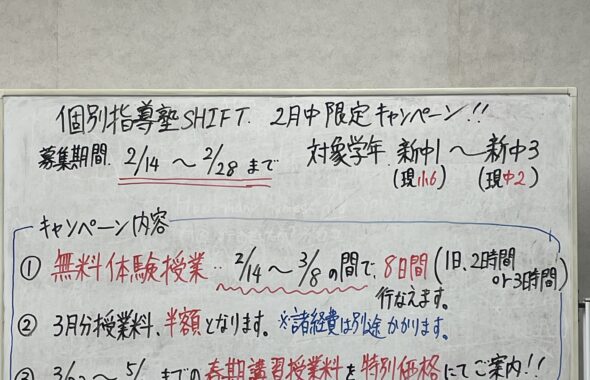 個別指導塾SHIFT. 2月中限定キャンペーン!!
募集期間. 2/14 〜 2/28 まで
対象学年. 新中1 〜 新中3
(現小6) (現中2)
キャンペーン内容
① 無料体験授業‥ 2/14〜3/8の間で、8日間(1日、2時間or3時間)
行なえます。
② 3月分授業料、半額となります。※諸経費は別途かかります。
③ 〜 5/ までの春期講習授業料を特別価格にてご案内!!